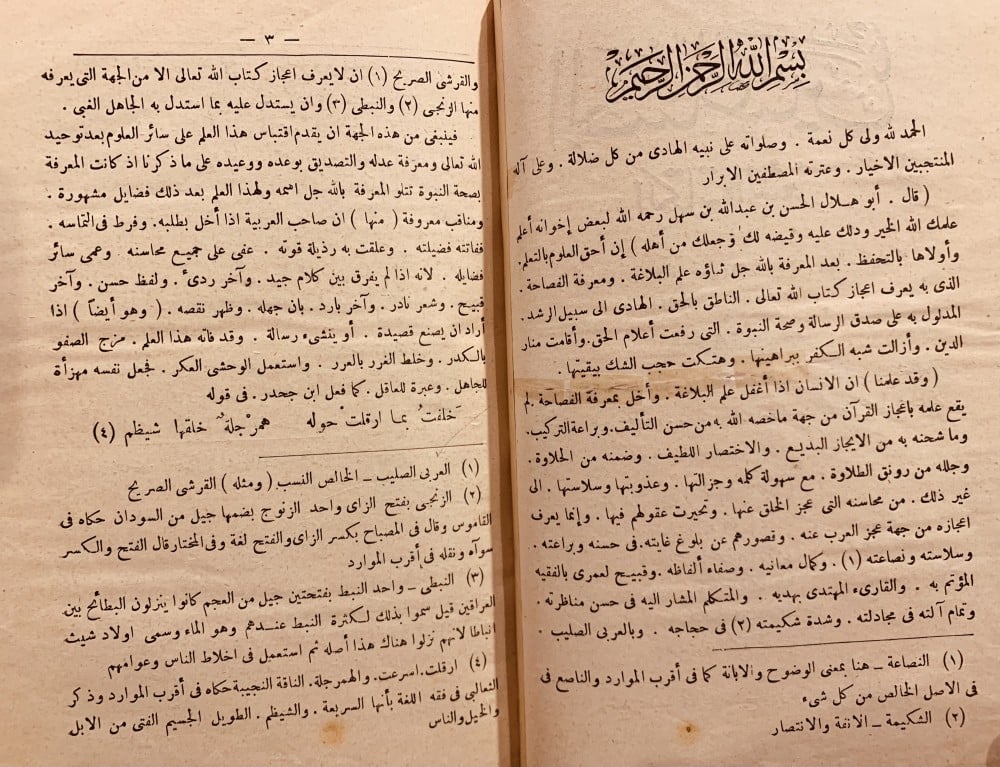 بِسْمِ اللهِ الرَّحْمنِ الرَّحِيمِ
الحمد لله ولى كل نعمة . وصلواته على نبيه الهادى من كل ضلالة . وعلى آله
المنتجبين الاخيار . وعترته المصطفين الابرار
( قال . أبو هلال الحسن بن عبدالله بن سهل رحمه الله لبعض إخوانه أعلم
علمك الله الخير ودلك عليه وقيضه لك وجعلك من أهله ) إن أحق العلوم بالتعلم.
وأولاها بالتحفظ . بعد المعرفة بالله جل ثناؤه علم البلاغة . ومعرفة الفصاحة .
الذى به يعرف اعجاز كتاب الله تعالى . الناطق بالحق . الهادى الى سبيل الرشد .
المدلول به على صدق الرسالة وصحة النبوة . التى رفعت أعلام الحق. وأقامت منار
الدين . وأزالت شبه الكفر ببراهينها . وهتكت حجب الشك بيقينها .
( وقد علمنا ) ان الانسان اذا أغفل علم البلاغة . وأخل بمعرفة الفصاحة لم
يقع علمه باعجاز القرآن من جهة ماخصه الله به من حسن التأليف. وبراعة التركيب.
وما شحنه به من الايجاز البديع . والاختصار اللطيف . وضمنه من الحلاوة.
وجلله من رونق الطلاوة . مع سهولة كلمه وجزالتها . وعذوبتها وسلاستها . الى
غير ذلك . من محاسنه التى عجز الخلق عنها . وتحيرت عقولهم فيها . وإنما يعرف
اعجازه من جهة عجز العرب عنه . وقصورهم عن بلوغ غايته. فى حسنه وبراعته .
وسلاسته ونصاعته (١) . وكمال معانيه . وصفاء ألفاظه . وقبيح لعمرى بالفقيه
المؤتم به . والقارىء المهتدى بهديه . والمتكلم المشار اليه فى حسن مناظرته .
وتمام آلته فى مجادلته . وشدة شكيمته (٢) فى حجاجه . وبالعربى الصليب .
(١) النصاعة ــ هنا بمعنى الوضوح والابانة كما فى أقرب الموارد والناصع فى
فى الاصل الخالص من كل شىء
(٢) الشكيمة ــ الانفة والانتصار
— ٣ —
والقرشى الصريح (١) ان لايعرف اعجاز كتاب الله تعالى الا من الجهة التى يعرفه
منها الزنجى (٢) والنبطى (٣) وان يستدل عليه بما استدل به الجاهل الغبى .
فينبغى من هذه الجهة ان يقدم اقتباس هذا العلم على سائر العلوم بعد توحيد
الله تعالى ومعرفة عدله والتصديق بوعده ووعيده على ما ذكرنا اذ كانت المعرفة
بصحة النبوة تتلو المعرفة بالله جل اسمه ولهذا العلم بعد ذلك فضايل مشهورة .
ومناقب معروفة ( منها ) ان صاحب العربية اذا أخل بطلبه. وفرط فى التماسه .
ففاتته فضيلته . وعلقت به رذيلة فوته . عفى على جميع محاسنه . وعمى سائر
فضايله . لانه اذا لم يفرق بين كلام جيد. وآخر ردئ . ولفظ حسن . وآخر
قبيح . وشعر نادر . وآخر بارد . بان جهله . وظهر نقصه . ( وهو أيضاً ) اذا
أراد ان يصنع قصيدة . أو ينشىء رسالة . وقد فاته هذا العلم . مزج الصفو
بالكدر . وخلط الغرر بالعرر . واستعمل الوحشى العكر . فجعل نفسه مهزأة
للجاهل . وعبرة للعاقل . كما فعل ابن جحدر . فى قوله
حَلفتُ بما ارقلتْ حوله همرْجلةٌ خلقها شيظم (٤)
(١) العربى الصليب ــ الخالص النسب ( ومثله ) القرشى الصريح
(٢) الزنجى بفتح الزاى واحد الزنوج بضمها جيل من السودان حكاه فى
القاموس وقال فى المصباح بكسر الزاى والفتح لغة وفى المختار قال الفتح والكسر
سوآه ونقله فى أقرب الموارد
(٣) النبطى ــ واحد النبط بفتحتين جيل من العجم كانوا ينزلون البطائح بين
العراقين قيل سموا بذلك لكثرة النبط عندهم وهو الماء وسمى اولاد شيث
انباطا لانهم نزلوا هناك هذا أصله ثم استعمل فى اخلاط الناس وعوامهم
(٤) ارقلت. اسرعت. والهمرجلة. الناقة النجيبة حكاه فى أقرب الموارد وذكر
الثعالبى فى فقه اللغة بأنها السريعة . والشيظم . الطويل الجسيم الفتى من الابل
والخيل والناس